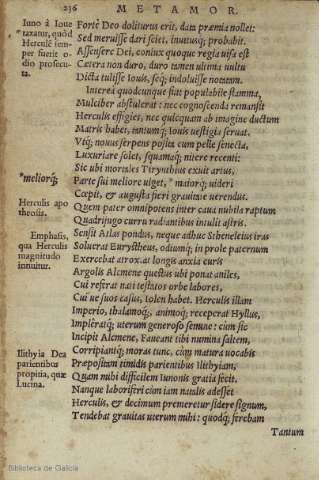 236 METAMOR.
Iuno à Ioue
taxatur, quòd
Herculi sem-
per fuerit o-
dio prosecu-
ta.
Fortè Deo doliturus erit, data præmia nollet:
Sed meruisse dari sciet, inuitusq; probabit.
Assensere Dei, coniux quoque regia uisa est
Cætera non duro, duro tamen ultima uultu
Dicta tulisse Iouis, seq; indoluisse notatam.
Interea quodcunque fuit populabile flammæ,
Mulciber abstulerat: nec cognoscenda remansit
Herculis effigies, nec quicquam ab imagine ductum
Matris habet, tantumq; Iouis uestigia seruat.
Vtq; nouus serpens posita cum pelle senecta,
Luxuriare solet, squamaq; nitere recenti:
Sic ubi mortales Tirynthius exuit artus,
*meliorq;
Parte sui meliore uiget, *maiorq; uideri
Cœpit, & augusta fieri grauitate uerendus.
Herculis apo
theosis.
Quem pater omnipotens inter caua nubila raptum
Quadriiugo curru radiantibus intulit astris.
Emphasis,
qua Herculis
magnitudo
innuitur.
Sensit Atlas pondus, neque adhuc Stheneleius iras
Soluerat Eurystheus, odiumq; in prole paternum
Exercebat atrox. at longis anxia curis
Argolis Alcmene questus ubi ponat aniles,
Cui referat nati testatos orbe labores,
Cui ue suos casus, Iolen habet. Herculis illam
Imperio, thalamoq;, animoq; receperat Hyllus,
Impleratq; uterum generoso semine: cum sic
Incipit Alcmene, Faueant tibi numina saltem,
Ilithyia Dea
parientibus
propitia, quæ
Lucina.
Corripiantq; moras tunc, cùm matura uocabis
Præpositam timidis parientibus Ilithyian,
Quam mihi difficilem Iunonis gratia fecit.
Nanque laboriferi cùm iam natalis adesset
Herculis, & decimum premeretur sidere signum,
Tendebat grauitas uterum mihi: quodq; ferebam
Tantum
Biblioteca de Galicia